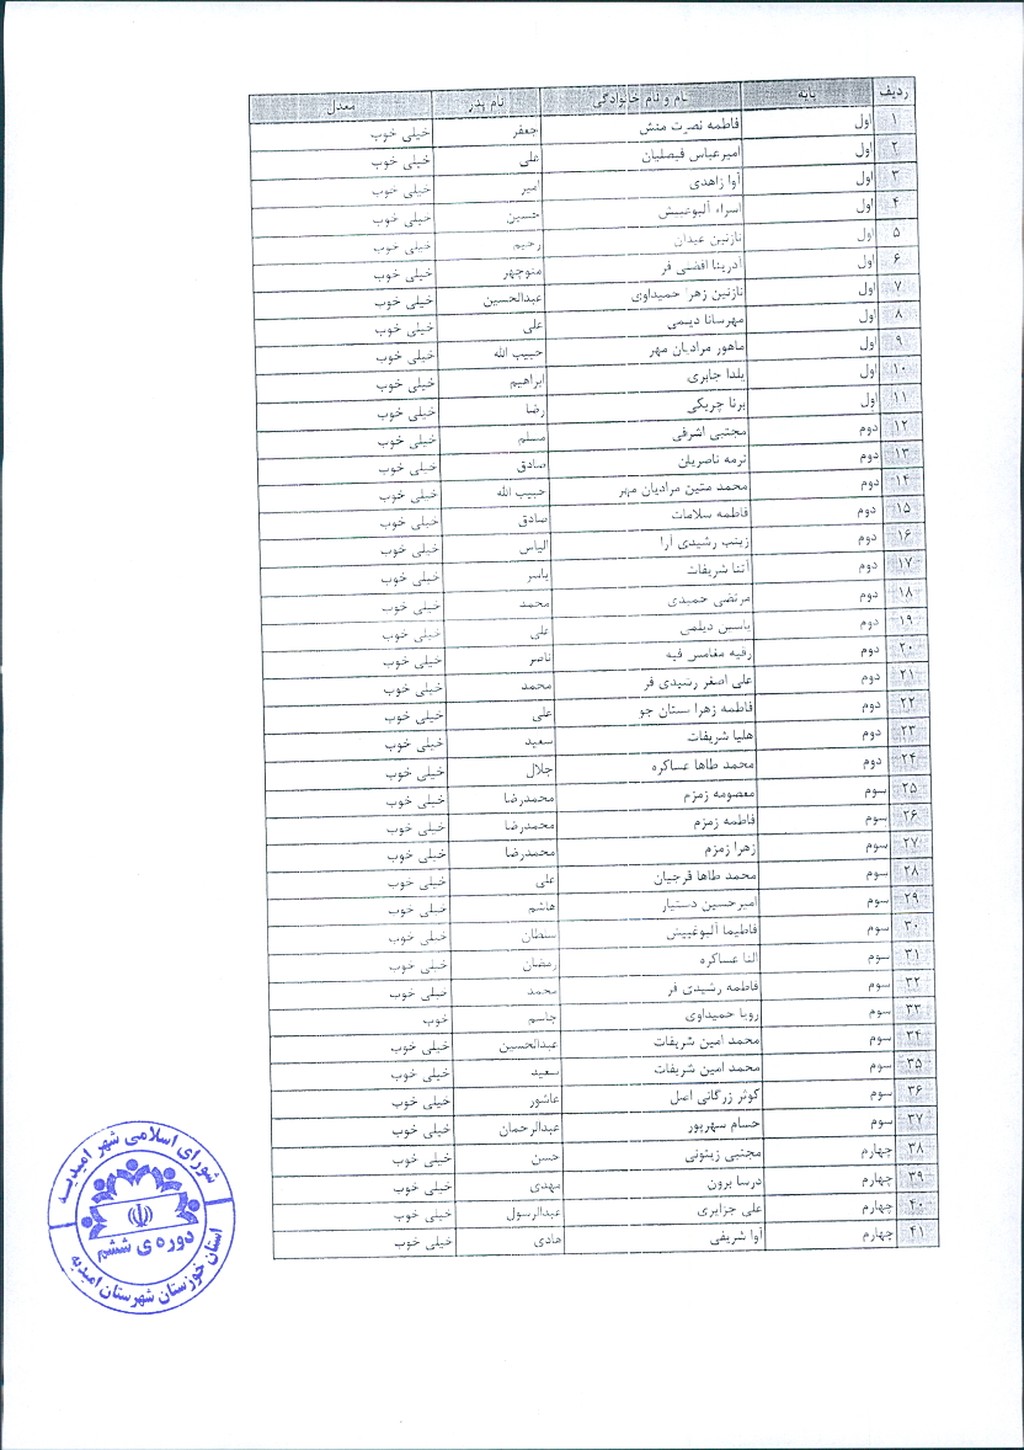 ردیف پایه نام و نام خانوادگی نام پدر معدل
۱ اول فاطمه نصرت منش جعفر خیلی خوب
۲ اول امیرعباس فیصلیان علی خیلی خوب
۳ اول آوا زاهدی امیر خیلی خوب
۴ اول اسراء آلبوغبیش حسین خیلی خوب
۵ اول نازنین عیدان رحیم خیلی خوب
۶ اول آدرینا افضلی فر منوچهر خیلی خوب
۷ اول نازنین زهرا حمیداوی عبدالحسین خیلی خوب
۸ اول مهرسانا دیلمی علی خیلی خوب
۹ اول ماهور مرادیان مهر حبیب الله خیلی خوب
۱۰ اول یلدا جابری ابراهیم خیلی خوب
۱۱ اول برنا چریکی رضا خیلی خوب
۱۲ دوم مجتبی اشرفی مسلم خیلی خوب
۱۳ دوم ترمه ناصریان صادق خیلی خوب
۱۴ دوم محمد متین مرادیان مهر حبیب الله خیلی خوب
۱۵ دوم فاطمه سلامات صادق خیلی خوب
۱۶ دوم زینب رشیدی آرا الیاس خیلی خوب
۱۷ دوم آتنا شریفات یاسر خیلی خوب
۱۸ دوم مرتضی حمیدی محمد خیلی خوب
۱۹ دوم یاسین دیلمی علی خیلی خوب
۲۰ دوم رقیه مغامس قیه ناصر خیلی خوب
۲۱ دوم علی اصغر رشیدی فر محمد خیلی خوب
۲۲ دوم فاطمه زهرا ستان جو علی خیلی خوب
۲۳ دوم هلیا شریفات سعید خیلی خوب
۲۴ دوم محمد طاها عساکره جلال خیلی خوب
۲۵ سوم معصومه زمزم محمدرضا خیلی خوب
۲۶ سوم فاطمه زمزم محمدرضا خیلی خوب
۲۷ سوم زهرا زمزم محمدرضا خیلی خوب
۲۸ سوم محمد طاها فرجیان علی خیلی خوب
۲۹ سوم امیرحسین دستیار هاشم خیلی خوب
۳۰ سوم فاطیما آلبوغبیش سلطان خیلی خوب
۳۱ سوم النا عساکره رمضان خیلی خوب
۳۲ سوم فاطمه رشیدی فر محمد خیلی خوب
۳۳ سوم رویا حمیداوی جاسم خوب
۳۴ سوم محمد امین شریفات عبدالحسین خیلی خوب
۳۵ سوم محمد امین شریفات سعید خیلی خوب
۳۶ سوم کوثر زرگانی اصل عاشور خیلی خوب
۳۷ سوم حسام سهرپور عبدالرحمان خیلی خوب
۳۸ چهارم مجتبی زیتونی حسن خیلی خوب
۳۹ چهارم درسا برون مهدی خیلی خوب
۴۰ چهارم علی جزایری عبدالرسول خیلی خوب
۴۱ چهارم آوا شریفی هادی خیلی خوب
شورای اسلامی شهر امیدیه
دوره ی ششم
استان خوزستان شهرستان امیدیه